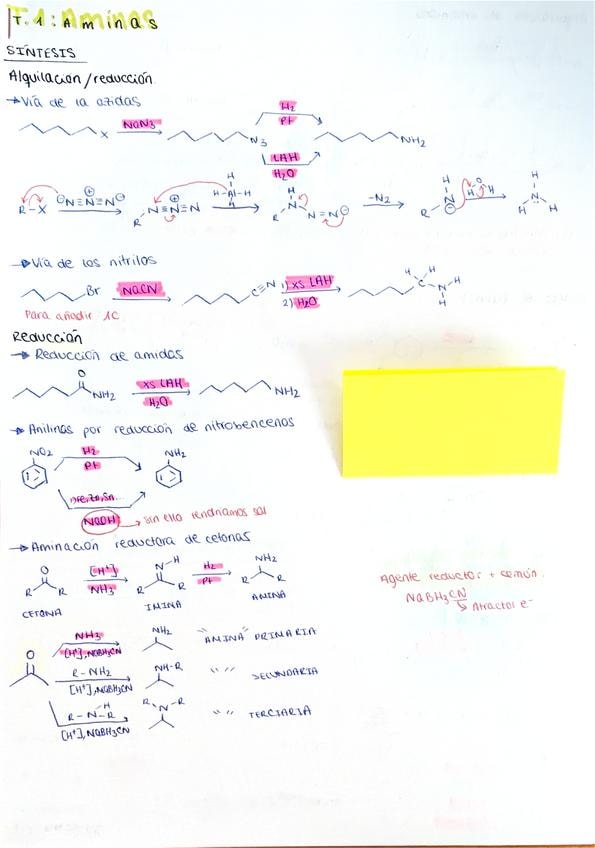 T.1: Aminas
SÍNTESIS
Alquilación/reducción
→ Vía de la azidas
X NaN3 N3 H2 Pt NH2
LAH H2O
R-X ⊖N=N⊕=N⊖ R N=N⊕=N H H-Al-H H R N H N=N⊖ -N2 R N⊖ H H O H H N H H
→ Vía de los nitrilos
Br NaCN C≡N 1) xs LAH 2) H2O C H H N H H
Para añadir 1C
Reducción
→ Reducción de amidas
O NH2 xs LAH H2O NH2
→ Anilinas por reducción de nitrobencenos
NO2 H2 Pt NH2
1) Fe, Zn, Sn...
NaOH → sin ello tendríamos sal
→ Aminación reductora de cetonas
O R R [H+] NH3 N H R R H2 Pt NH2 R R
CETONA IMINA AMINA
Agente reductor + común.
NaBH3CN
↳ Atractor e-
O NH3 [H+], NaBH3CN NH2 "AMINA" PRIMARIA
R-NH2 [H+], NaBH3CN NH-R "" SECUNDARIA
R-N-R H [H+], NaBH3CN R N R "" TERCIARIA